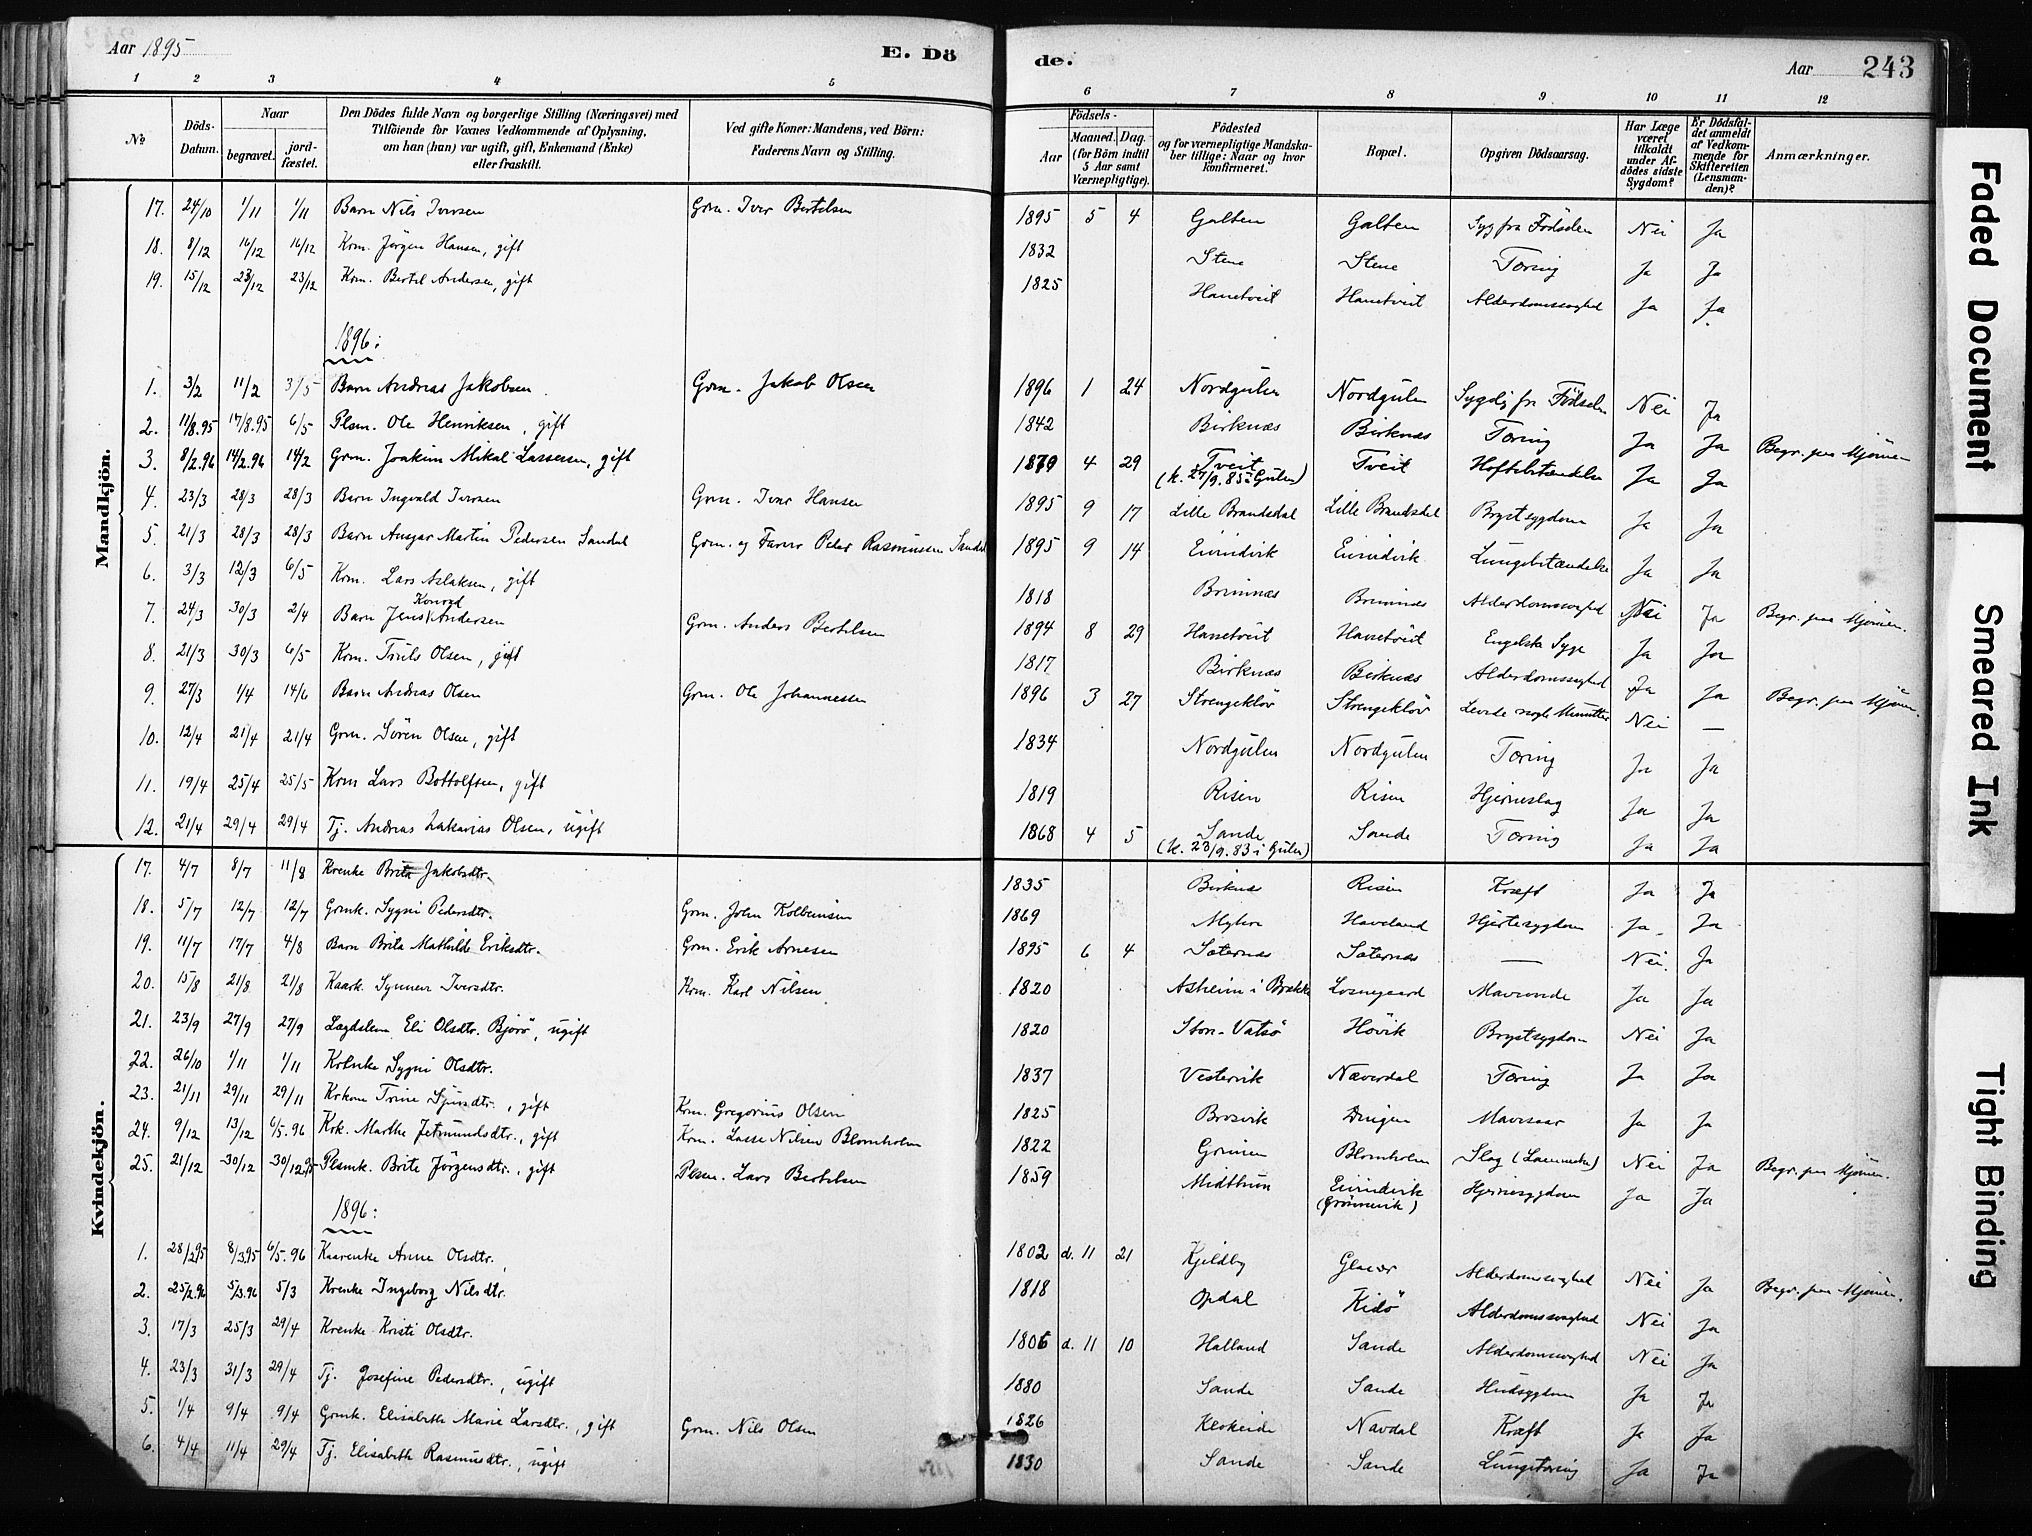 Aar 1895 E. Dö de. Aar 243
1 2 3 4 5 6 7 8 9 10 11 12
No
Döds-Datum.
Naar
begravet.
jordfæstet.
Den Dödes fulde Navn og borgerlige Stilling (Næringsvei) med
Tilföiende for Voxnes Vedkommende af Oplysning,
om han (hun) var ugift, gift, Enkemand (Enke)
eller fraskilt.
Ved gifte Koner: Mandens, ved Börn:
Faderens Navn og Stilling.
Födsels-
Aar
Maaned. Dag.
(for Börn indtil
5 Aar samt
Værnepligtige).
Födested
og for værnepligtige Mandskaber tillige: Naar og hvor
konfirmeret.
Bopæl.
Opgiven Dödsaarsag.
Har Læge
været
tilkaldt
under Afdödes sidste
Sygdom?
Er Dödsfaldet anmeldt
af Vedkommende for
Skifteretten
(Lensmanden)?
Anmærkninger.
Mandkjön.
17. 24/10 1/11 1/11 Barn Nils Iversen Grm. Iver Bertelsen 1895 5 4 Galten Galten Syg fra Födselen Nei Ja
18. 8/12 16/12 16/12 Krm. Jörgen Hansen, gift 1832 Stene Stene Tæring Ja Ja
19. 15/12 23/12 23/12 Krm. Bertel Andersen, gift 1825 Hanetveit Hanetveit Alderdomssvaghed Ja Ja
1896:
1. 3/2 11/2 3/5 Barn Andreas Jakobsen Grm. Jakob Olsen 1896 1 24 Nordgulen Nordgulen Sygelig fra Födselen Nei Ja
2. 11/8.95 17/8.95 6/5 Plsm. Ole Henriksen, gift 1842 Birknæs Birknæs Tæring Ja Ja Begr. paa Mjömen
3. 8/2.96 14/2.96 14/2 Grm. Joakim Mikal Lassesen, gift 1870 4 29 Tveit (k. 27/9.85 i Gulen) Tveit Hoftebetændelse Ja Ja
4. 23/3 28/3 28/3 Barn Ingvald Iversen Grm. Ivar Hansen 1895 9 17 Lille Brandsdal Lille Brandsdal Brystsygdom Ja Ja
5. 21/3 28/3 28/3 Barn Ansgar Martin Pedersen Sandal Grm. og Farver Peder Rasmussen Sandal 1895 9 14 Eivindvik Eivindvik Lungebetændelse Ja Ja
6. 3/3 12/3 6/5 Krm. Lars Aslaksen, gift 1818 Brimnæs Brimnæs Alderdomssvaghed Nei Ja Begr. paa Mjömen.
7. 24/3 30/3 2/4 Barn Jens Konrad Andersen Grm. Anders Bertelsen 1894 8 29 Hanetveit Hanetveit Engelske Syge Ja Ja
8. 21/3 30/3 6/5 Krm. Truls Olsen, gift 1817 Birknæs Birknæs Alderdomssvaghed Ja Ja Begr. paa Mjömen.
9. 27/3 1/4 14/6 Barn Andreas Olsen Grm. Ole Johannessen 1896 3 27 Strengeklöv Strengeklöv Levede nogle Minutter Nei —
10. 12/4 21/4 21/4 Grm. Sören Olsen, gift 1834 Nordgulen Nordgulen Tæring Ja Ja
11. 19/4 25/4 25/5 Krm Lars Bottolfsen, gift 1819 Risen Risen Hjerneslag Ja Ja
12. 21/4 29/4 29/4 Tj. Andreas Zakarias Olsen, ugift 1868 4 5 Sande (k. 23/9.83 i Gulen) Sande Tæring Ja Ja
Kvindekjön.
17. 4/7 8/7 11/8 Krenke Brita Jakobsdtr. 1835 Birknæs Risen Kræft Ja Ja
18. 5/7 12/7 12/7 Grmk. Sygni Pedersdtr. Grm. John Kolbeinsen 1869 Haveland Hjertesygdom Ja Ja
19. 11/7 17/7 4/8 Barn Brita Mathilde Eriksdtr. Grm. Erik Arnesen 1895 6 4 Sæternæs Sæternæs — Nei. Ja
20. 15/8 21/8 21/8 Kaark. Synneve Iversdtr. Krm. Karl Nilsen 1820 Asheim i Brekke Losnegaard Mavevonde Ja Ja
21. 23/9 27/9 27/9 Lægdslem Eli Olsdtr. Bjorö, ugift 1820 Store-Vatsö Hövik Brystsygdom Nei Ja
22. 26/10 1/11 1/11 Krenke Sygni Olsdtr. 1837 Vestervik Næverdal Tæring Ja Ja
23. 21/11 29/11 29/11 Krkone Trine Sjursdtr., gift Krm. Gregorius Olsen 1825 Brosvik Dingen Mavesaar Ja Ja
24. 9/12 13/12 6/5.96 Krk. Marthe Jetmundsdtr., gift Krm. Lasse Nilsen Blomholm 1822 Grimen Blomholm Slag (Lammelse) Nei Ja Begr. paa Mjömen.
25. 21/12 30/12 30/12.95 Plsmk. Brite Jörgensdtr., gift Plsm. Lars Bertelsen 1859 Midttun Eivindvik (Grönnevik) Hjernesygdom Ja Ja
1896:
1. 28/2.95 8/3.95 6/5.96 Kaarenke Anne Olsdtr. 1802 d. 11 21 Kjeldby Glavær Alderdomssvaghed Nei Ja Begr. paa Mjömen.
2. 25/2.96 5/3.96 5/3 Krenke Ingeborg Nilsdtr. 1818 Opdal Kidö Alderdomssvaghed Nei Ja
3. 17/3 25/3 29/4 Krenke Kristi Olsdtr. 1806 d. 11 10 Halland Sande Alderdomssvaghed Nei Ja
4. 23/3 31/3 29/4 Tj. Josefine Pedersdtr., ugift 1880 Sande Sande Hudsygdom Ja Ja
5. 1/4 9/4 9/4 Grmk. Elisabeth Marie Larsdtr., gift Grm. Nils Olsen 1826 Kleiveide Navdal Kræft Ja Ja
6. 4/4 11/4 29/4 Tj. Elisabeth Rasmusdtr., ugift 1830 Sande Sande Lungetæring Ja Ja
Faded Document
Smeared Ink
Tight Binding